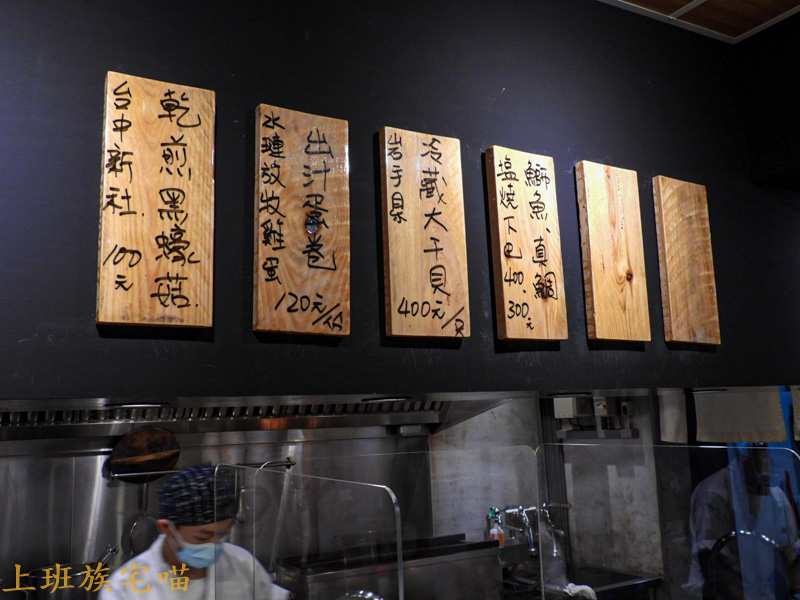 乾煎黑蠔菇.
台中新社.
100元
出汁蛋卷
水瓏放牧雞蛋
120元/份
冷藏大干貝
岩手県
400元/只
鰤魚、真鯛
塩燒下巴
400、300元
上班族宅喵